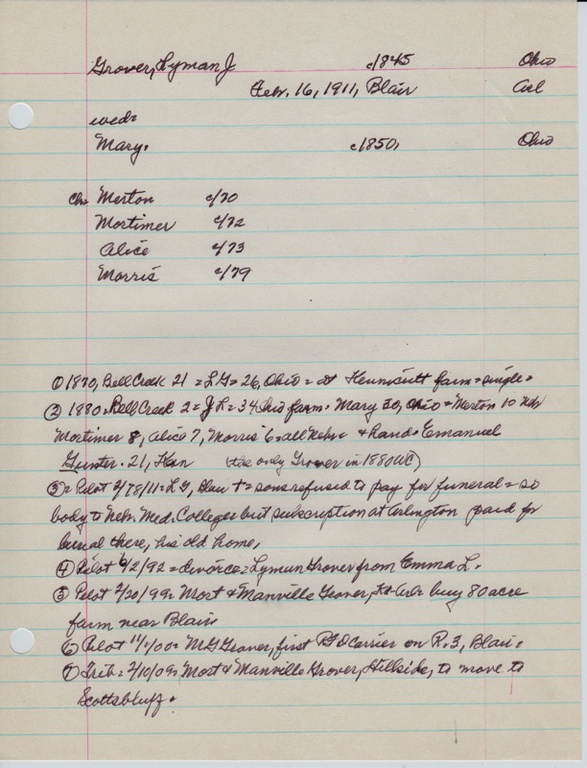 Grover, Lyman J c1845 Ohio
Feb. 16, 1911, Blair Arl
wed=
Mary. c1850, Ohio
Chr Merton c/70
Mortimer c/72
Alice c/73
Morris c/79
① 1870, Bell Creek 21 = LG = 26, Ohio = at Kennicutt farm = single =
② 1880 = Bell Creek 2 = JL = 34 Ohio farm. Mary 30, Ohio = Merton 10 Neb
Mortimer 8, Alice 7, Morris 6 = all Nebr & hand = Emanuel
Gunter. 21, Han (the only Grover in 1880 WC)
③ = Pilot 2/78/11 = LG, Blair † = sons refused to pay for funeral = so
body to Nebr. Med. College but subscription at Arlington paid for
burial there, his old home,
④ Pilot 6/2/92 = divorce = Lyman Grover from Emma L.
⑤ Pilot 2/20/99 = Mort & Manville Grover, buy 80 acre
farm near Blair
⑥ Pilot 11/1/00 = MG Grover, first RFD Carrier on R. 3, Blair.
⑦ Trib = 2/10/09 = Mort & Manville Grover, Hillside, to move to
Scottsbluff.